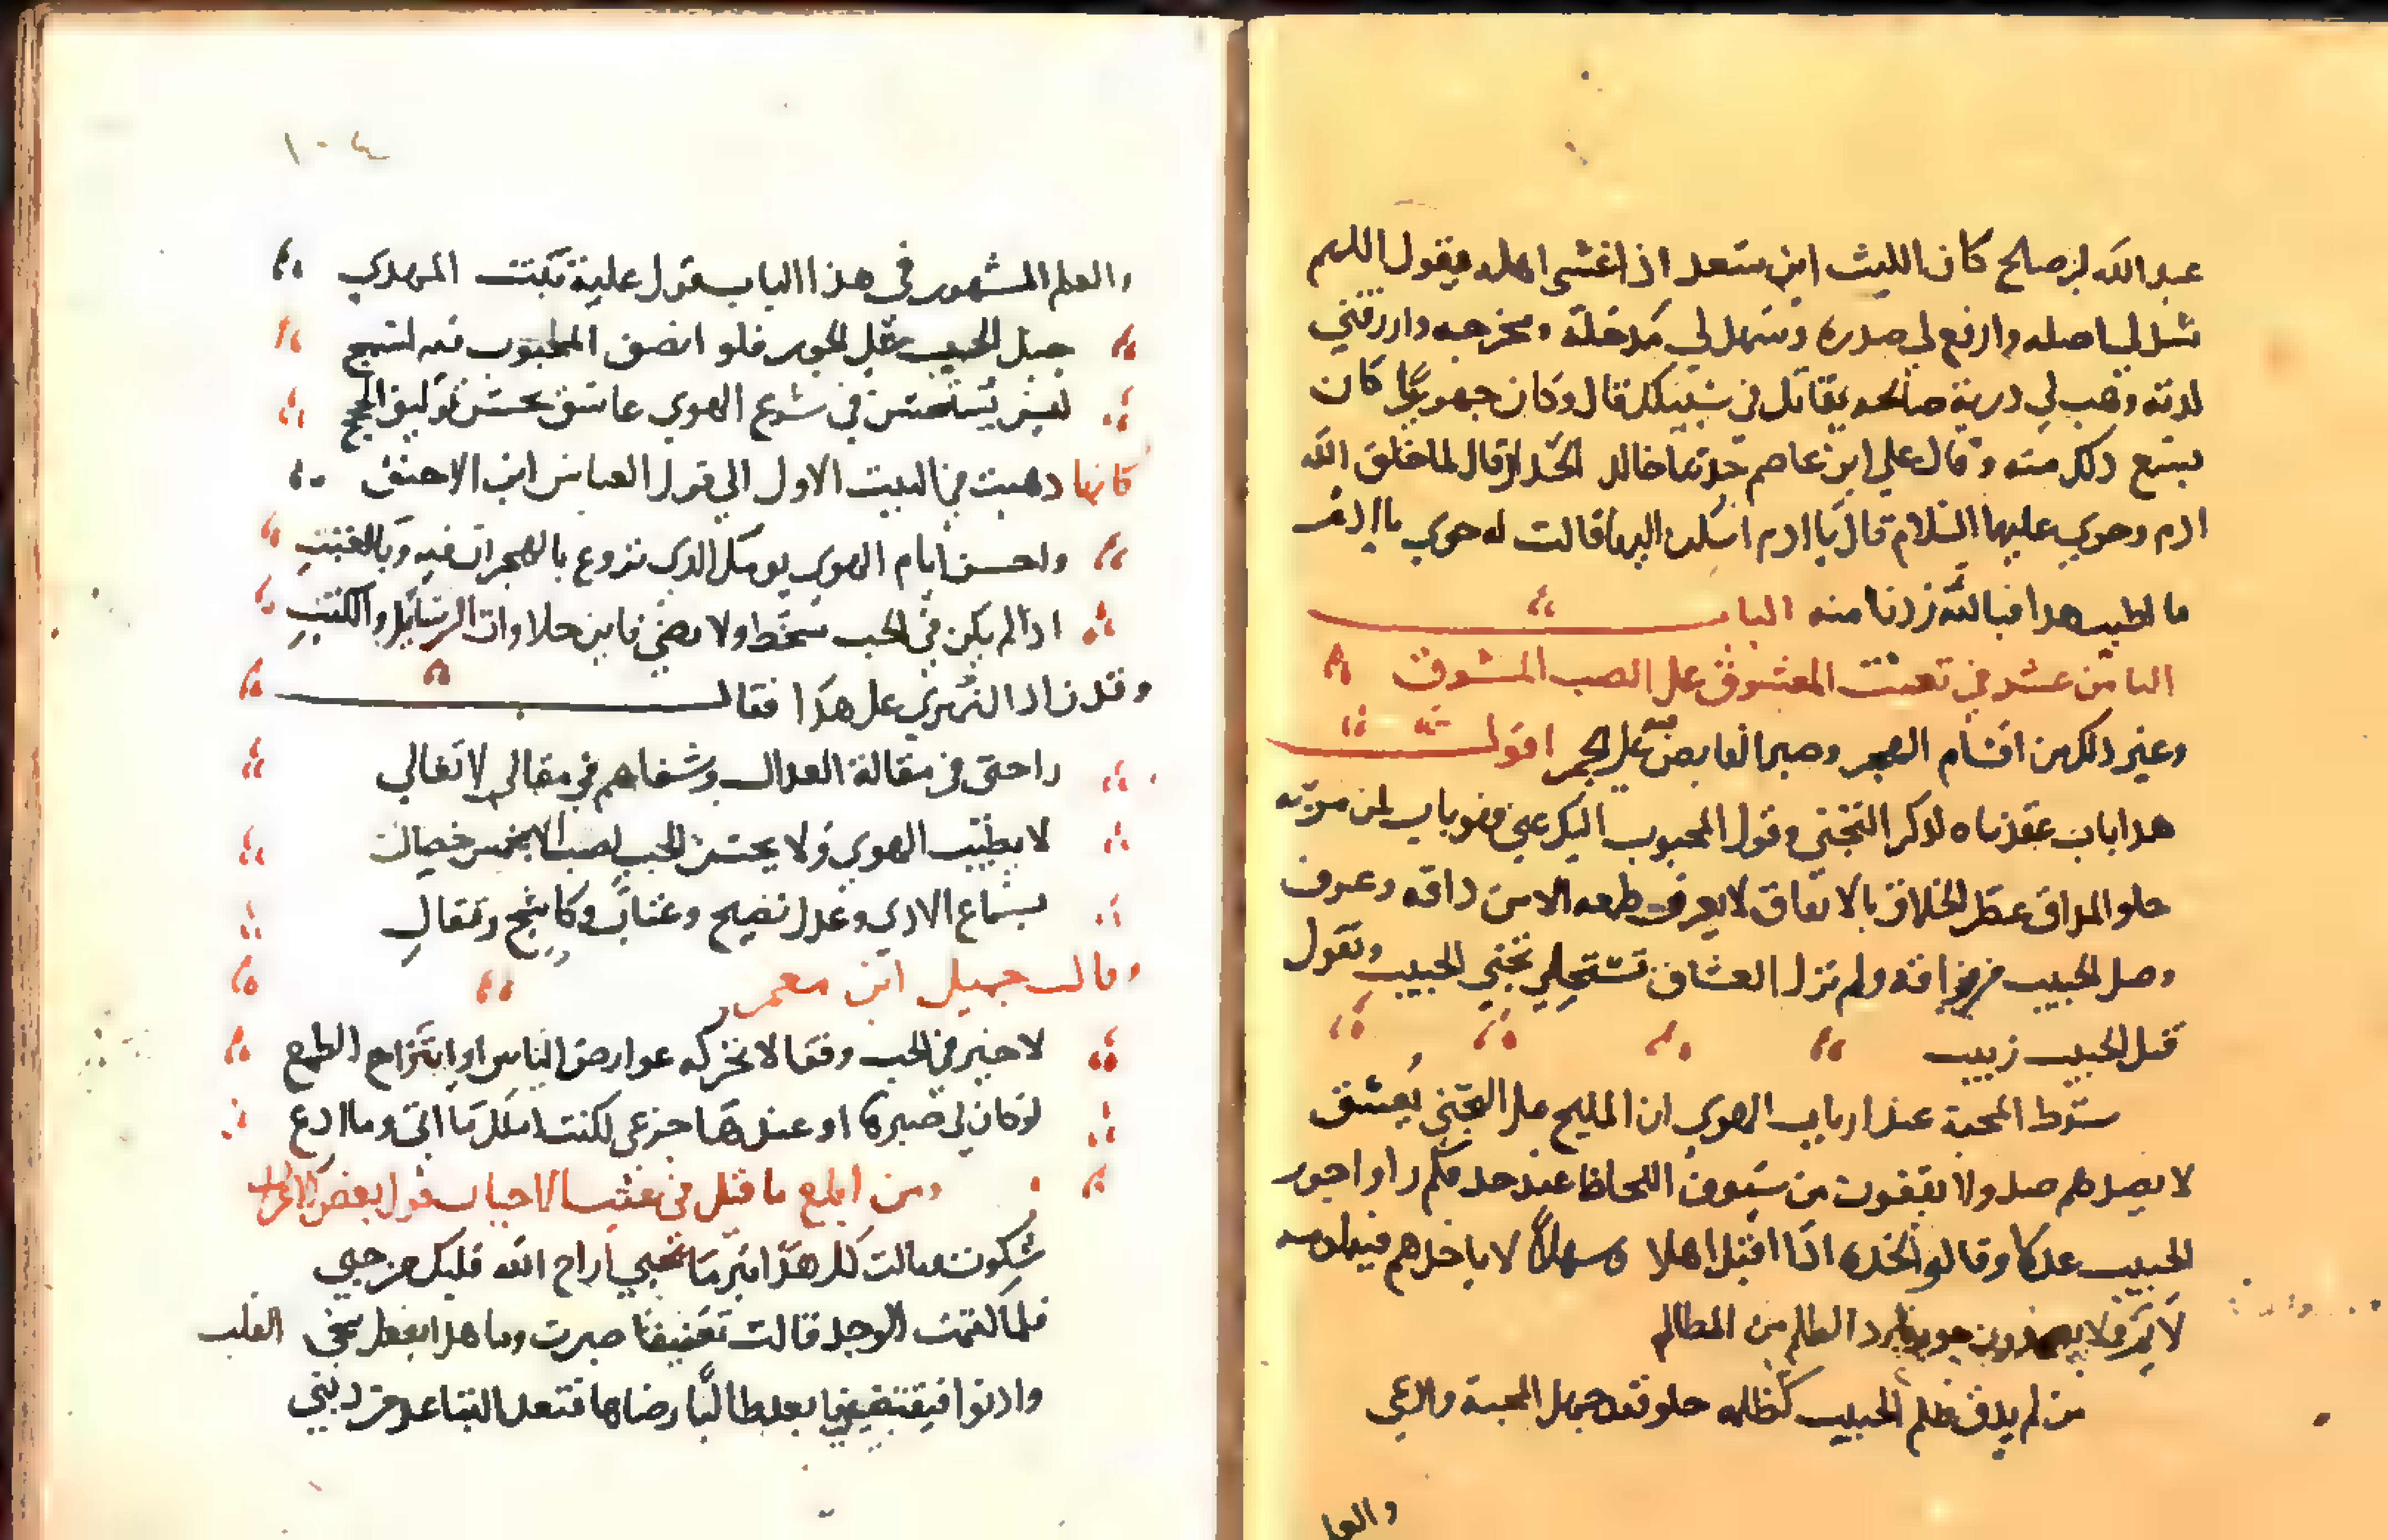 عبد الله بن صالح كان الليث ابن سعد اذا غشى اهله يقول اللهم
شد لي اصله وارفع لي صدره وسهل لي مدخله ومخرجه وارزقني
لذته وهب لي درية صالحه يقاتل في سبيلك قال وكان جهوريا كان
يسمع ذلك منه وقال علي ابن عاصم حدثنا خالد الحذا قال لما خلق الله
ادم وحوي عليهما السلام قال يا ادم اسكن اليها قالت له حوي يا ادم
ما اطيب هدا فبالله زدنا منه الباب
الثامن عشر في تعنت المعشوق على الصب المشوق
وغير ذلك من اقسام الهجر وصبر القابض فيه على الجمر اقول
هدا باب عقدناه لذكر التجني وقول المحبوب اليك عني وهو باب
حلو المداق عطر الخلاق بالاتفاق لا يعرف طعمه الا من داقه وعرف
وصل الحبيب من فراقه ولم تزل العشاق تستحلي تجني الحبيب وتقول
قتل الحبيب زبيب
شرط المحبة عند ارباب الهوي ان المليح على التجني يعشق
لا يصدهم صد ولا يقفون من سيوف اللحاظ عند حد فكم راوا جور
الحبيب عدلا وقالوا لخده اذا اقبل اهلا وسهلا لا ياخذهم فيه
لايم ولا رد الظلم من المظالم
من لم يدق ظلم الحبيب كظلمه حلو فقد جهل المحبة وادعي
والعلم
١٠٤
والعلم المشهور في هذا الباب قول علية بنت المهدي
جبل الحبيب على الجور فلو انصف المحبوب فيه لسمج
ليس يستحسن في شرع الهوي عاشق يحسن تاليق الحجج
كانها دهبت في البيت الاول الي قول العباس ابن الاحنف
واحسن ايام الهوي يومك الدي تروع بالهجران فيه وبالعتب
ادا لم يكن في الحب سخط ولا رضي فاين حلاوات الرسايل والكتب
وقد زاد النميري على هدا فقال
راحتى في مقالة العدال وشفاهم في مقالى لا تغالي
لا يطيب الهوي ولا يحسن الحب لصب الا بخمس خصال
بسماع الادي وعدل نصيح وعتاب وكاشح وتقال
وقال جميل ابن معمر
لا خير في الحب وقفا لا تحركه عوارض الياس او يرتاح الطمع
لو كان لي صبرها او عندها جزعى لكنت املك ما اتى وما ادع
ومن ابدع ما قيل في الاحباب قول بعض الاعراب
شكوت فقالت كل هدا تبرما بحبي اراح الله قلبك من حبي
فلما كتمت الوجد قالت تعنيفا صبرت وما هدا بفعل شجي القلب
وادنوا فيقصيني فابعد طالبا رضاها فتعد التباعد من دنبي